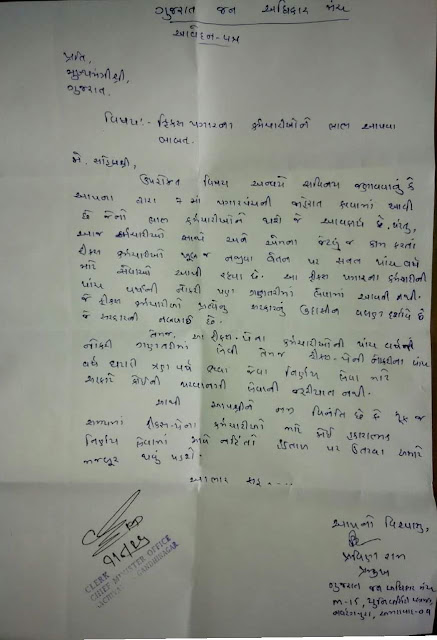 ગુજરાત જન અધિકાર મંચ
આવેદન-પત્ર
પ્રતિ,
મુખ્યમંત્રીશ્રી,
ગુજરાત.
વિષય:- ફિક્સ પગારના કર્મચારીઓને લાભ આપવા
બાબત.
મે. સાહેબશ્રી,
ઉપરોક્ત વિષય અન્વયે સવિનય જણાવવાનું કે
આપના દ્વારા ૭ માં પગારપંચની જાહેરાત કરવામાં આવી
છે જેનો લાભ કર્મચારીઓને થશે જે આવકાર્ય છે. પરંતુ,
આજ કર્મચારીઓ સાથે અને એમના જેટલું જ કામ કરતાં
ફીક્સ કર્મચારીઓ ખૂબ જ નજીવા વેતન પર સતત પાંચ વર્ષ
માટે સેવાઓ આપી રહ્યા છે. આ ફીક્સ પગારના કર્મચારીની
પાંચ વર્ષની નોકરી પણ ગણતરીમાં લેવામાં આવતી નથી.
જે ફીક્સ કર્મચારીઓ પ્રત્યેનું સરકારનું ઉદાસીન વલણ દર્શાવે છે
જે સરકારની નબળાઈ છે.
તેમજ, આ ફીક્સ-પેના કર્મચારીઓની પાંચ વર્ષની
નોકરી ગણતરીમાં લેવી તેમજ ફીક્સ-પેની નોકરીના પાંચ
વર્ષ ઘટાડી ત્રણ વર્ષ કરવા જેવા નિર્ણય લેવા માટે
સરકારે કોઈની પરવાનગી લેવાની જરૂરીયાત નથી.
આથી આપશ્રીને નમ્ર વિનંતિ છે કે ટૂંક જ
સમયમાં ફીક્સ-પેના કર્મચારીઓ માટે કોઈ હકારાત્મક
નિર્ણય લેવામાં આવે નહિંતો હડતાળ પર ઉતરવા અમારે
મજબૂર થવું પડશે.
આભાર સહ ....
આપનો વિશ્વાસુ,
પ્રવિણ રામ
પ્રમુખ
ગુજરાત જન અધિકાર મંચ
M-15,
નવરંગપુરા, અમદાવાદ-09
CLERK
CHIEF MINISTER OFFICE
GANDHINAGAR